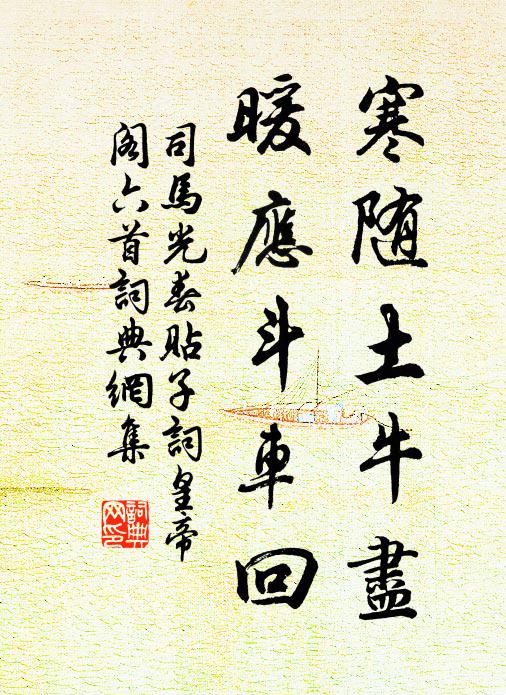 寒随土牛盡
暖應斗車回
司馬光春貼子詞皇帝
阁六首詞典網集
詞典
网印